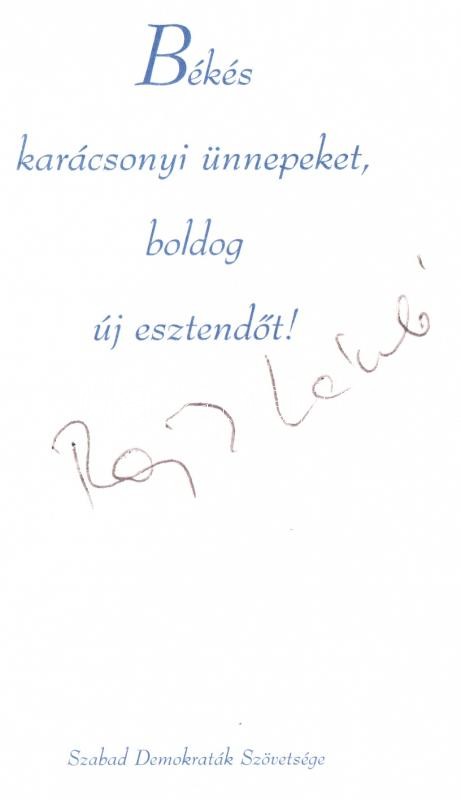 Békés
karácsonyi ünnepeket,
boldog
új esztendőt!
Szabad Demokraták Szövetsége